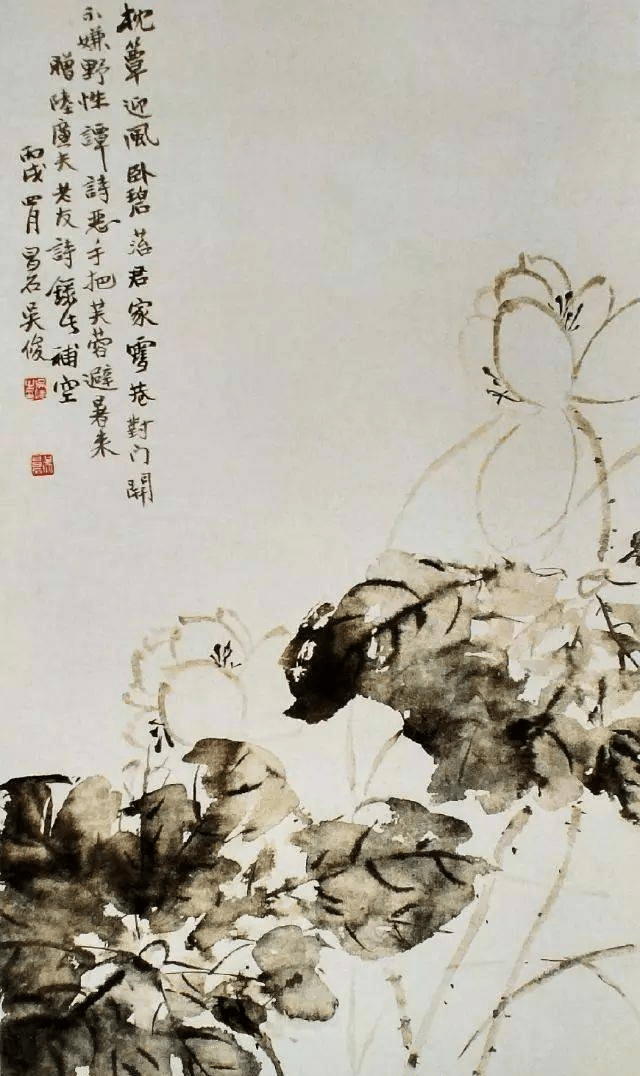 枕簟迎風卧碧苔君家巷對門開
不嫌野性譚詩惡手把芙蓉避暑来
贈陸廉夫老友詩錄此補空
丙戌四月昌石吴俊